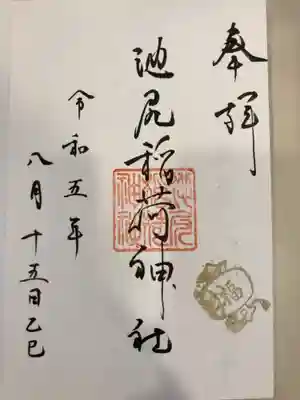 奉拝
池尻稲荷神社
令和五年
八月十五日乙巳
福